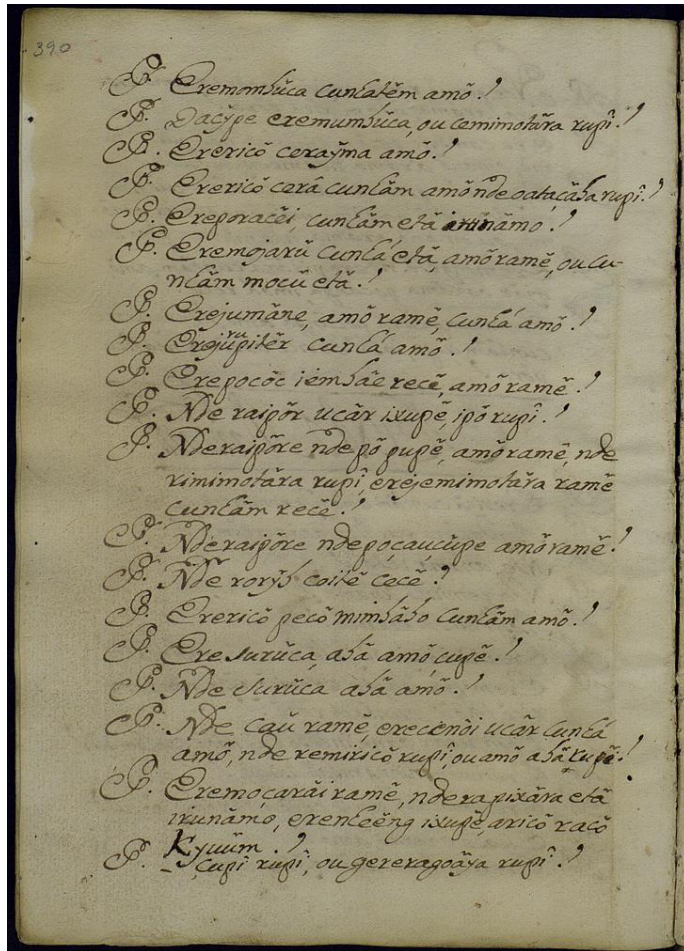 390
P. Eremomhũca cunhatẽm amõ?
P. Oacỹpe eremumhũca, ou cemimotãra rupî?
P. Erericõ ceraỹma amõ?
P. Erericõ cerâ cunhãm amõ nde oatacãba rupî?
P. Ereporacẽi, cunhãm etã irunãmo?
P. Eremojarũ cunhá etã, amõ ramẽ, ou cu-
nhãm mocũ etã?
P. Erejumãne, amõ ramẽ, cunhá amõ?
P. Erejurupitẽr cunhá amõ?
P. Erepocõc iembãe recẽ, amõ ramẽ?
P. Nde raipõr ucãr ixupẽ, ipõ rupî?
P. Nderaipõre nde põ pupẽ, amõ ramẽ, nde
rimimotãra rupî, erejemimotãra ramẽ
cunhãm recẽ?
P. Nderaipõre ndepoçauçũpe amõ ramẽ?
P. Nde rorỹb coitẽ cecẽ?
P. Erericõ pecõ minhãbo cunhãm amõ?
P. Ere surũca abã amõ çupẽ?
P. Nde surũca abã amõ?
P. Nde caũ ramẽ, erecenõi ucãr cunhá
amõ, nde remiricõ rupî, ou amõ abã xupẽ?
P. Eremoçarãi ramẽ, nderapixãra etã
irunãmo, erenheẽng ixupẽ, aricõ racõ
Kyuũm?
P. Cupî rupî, ou gereragoãya rupî?